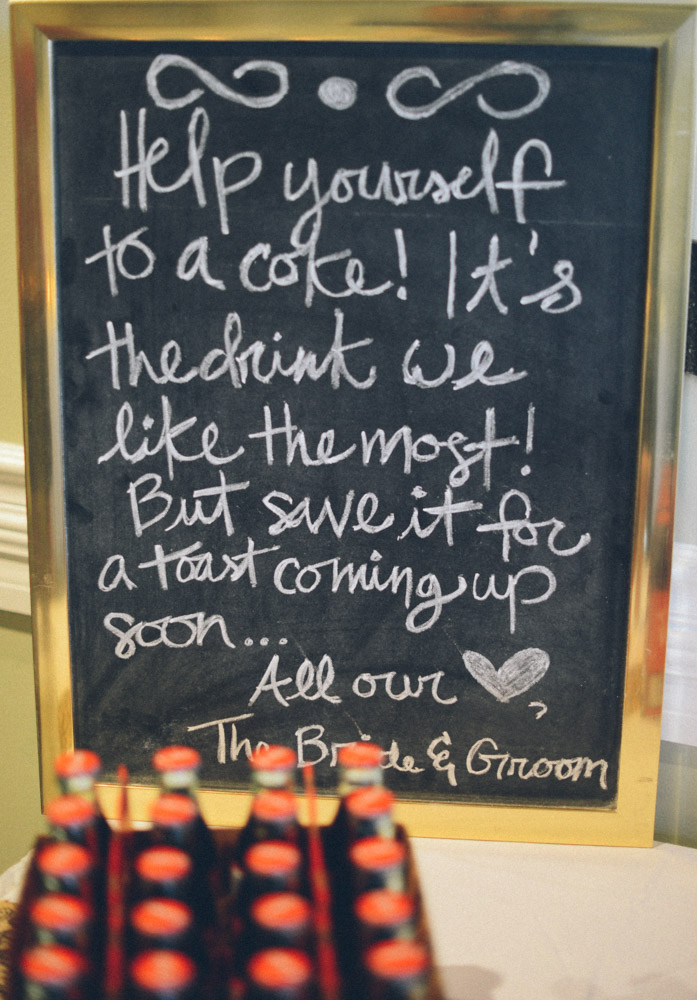 Help yourself
to a coke! It's
the drink we
like the most!
But save it for
a toast coming up
soon...
All our ♥,
The Bride & Groom